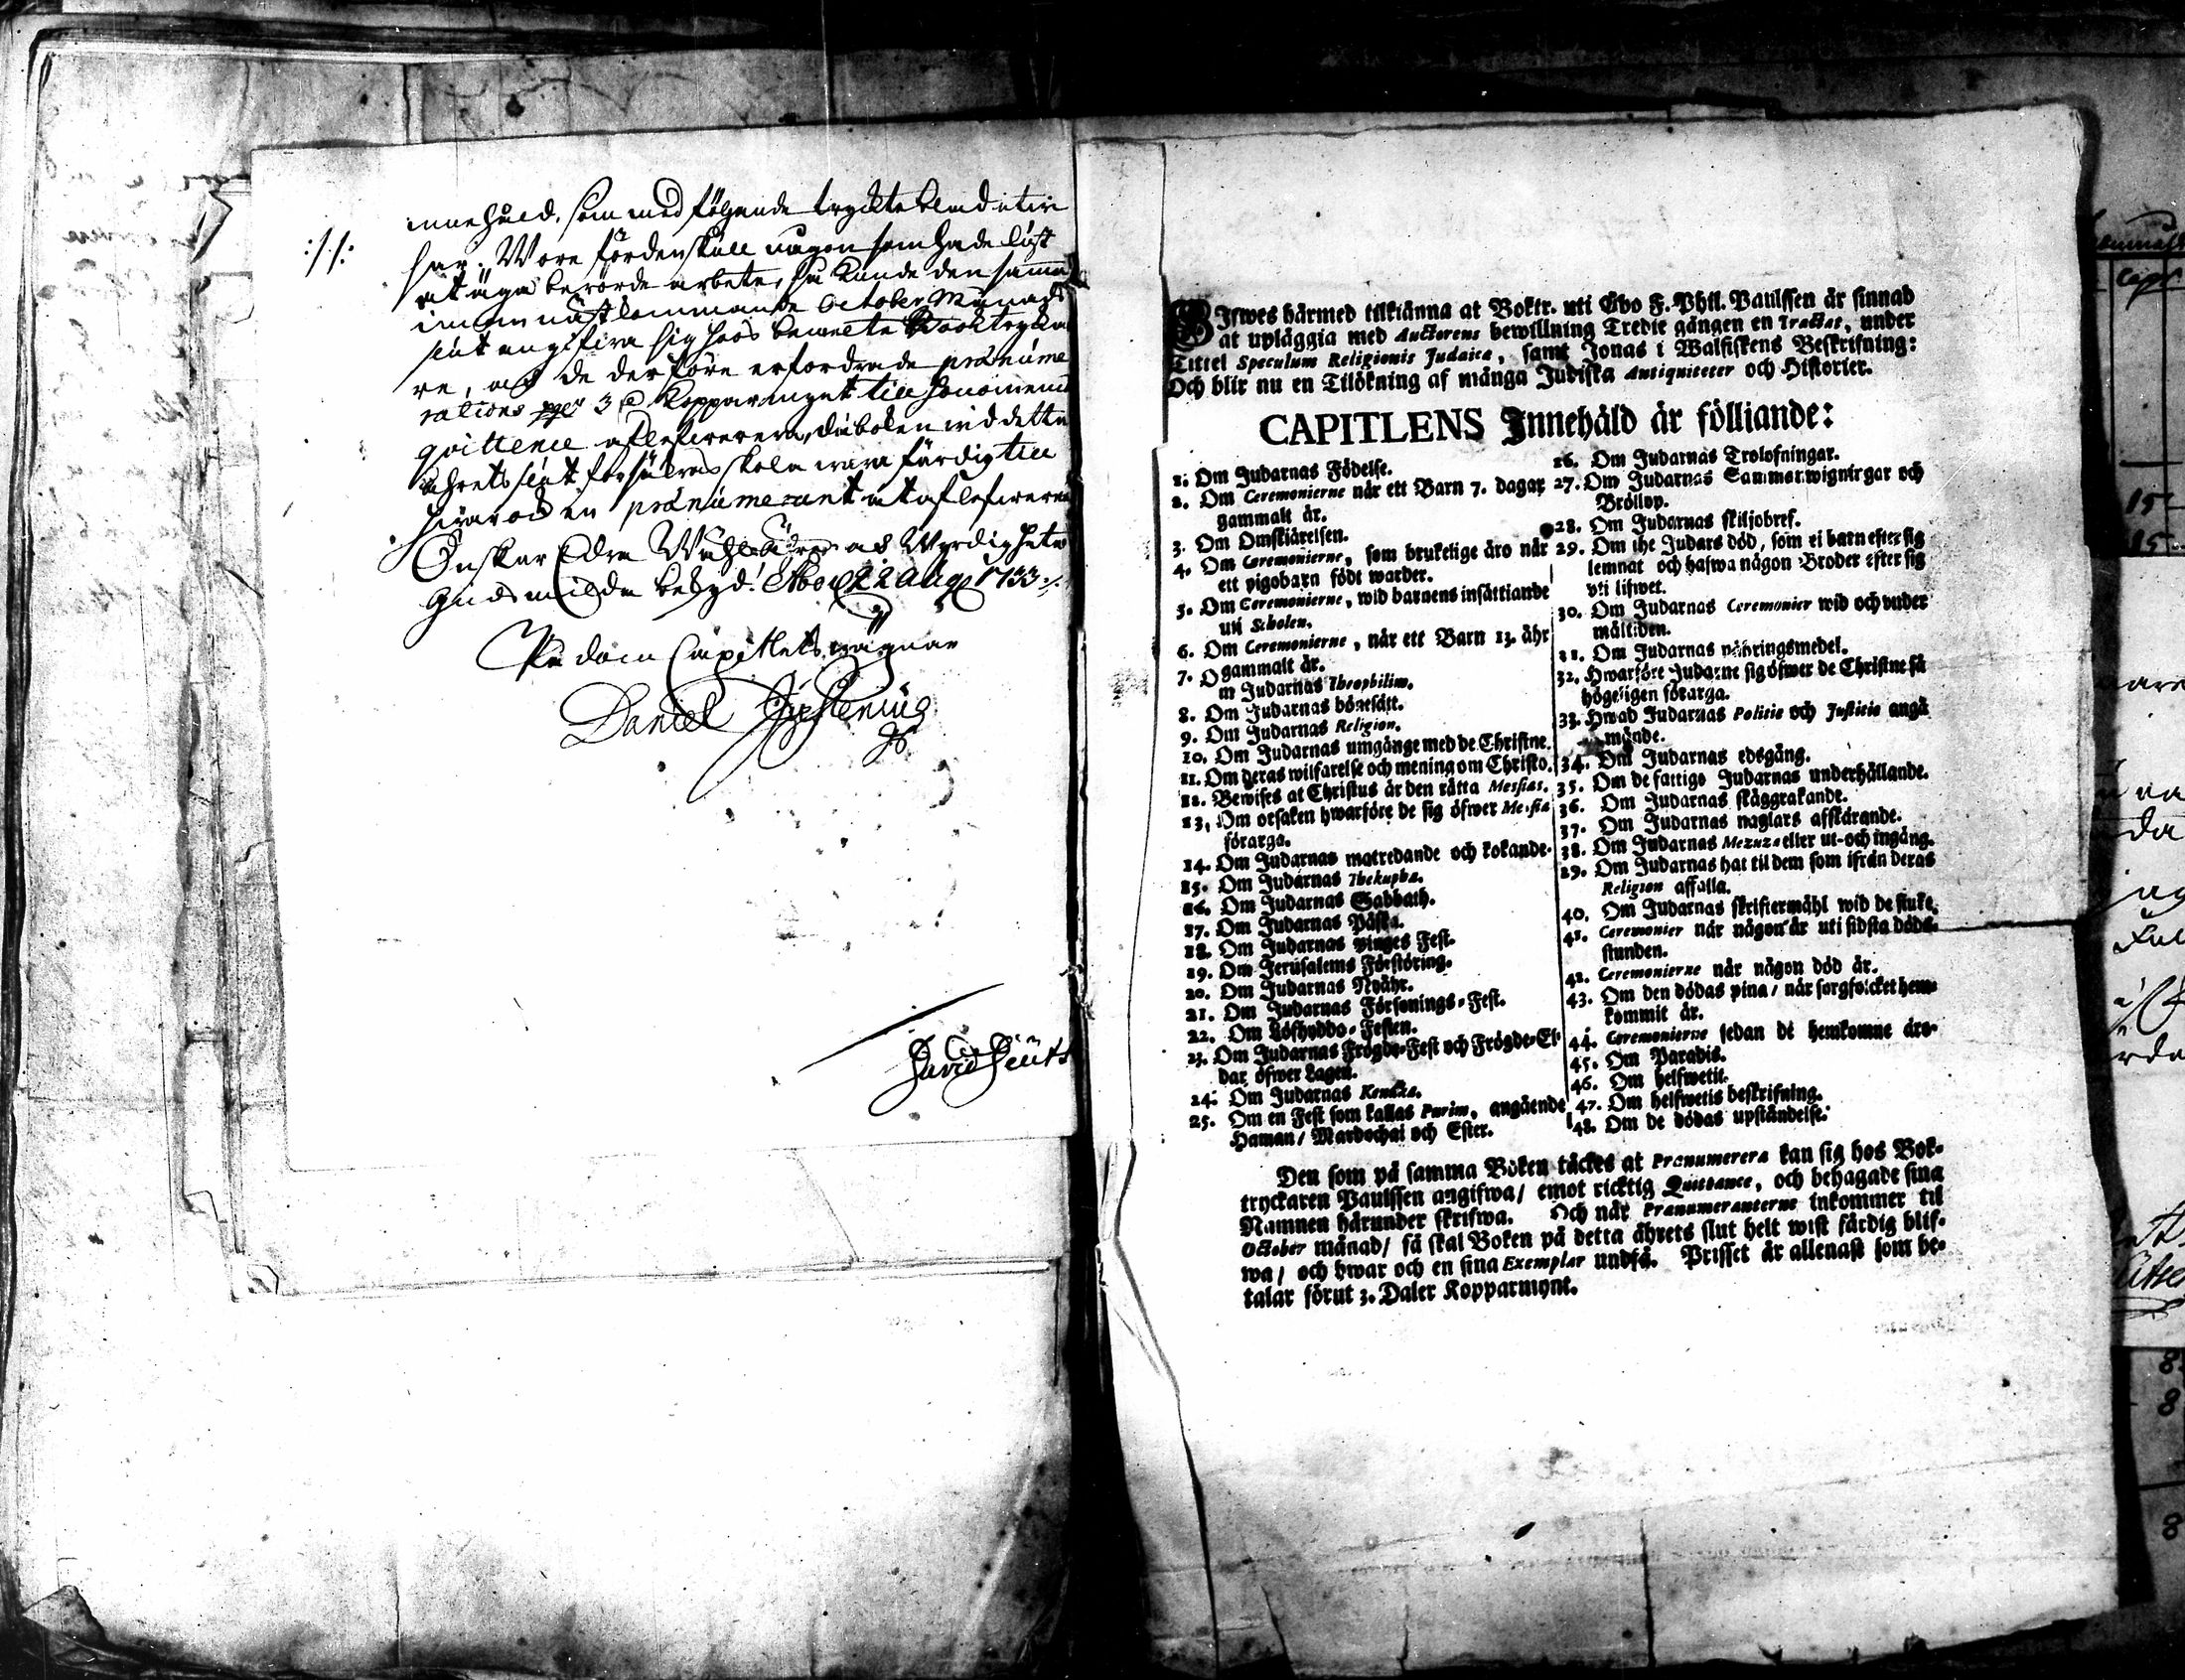 innehåld, som medfölgande tryckte blad utvi
:/:/: har. Wore fördenskull någon som hade lust
at äga berörde arbete, så kunde den samma
innom nästkommande October Månads
slut angifwa sig hoos bemelte Booktrycka
re, och de derföre erfordrade prænume
rations 3 kopparmynt till honom emot
qvittence aflefwerera, då boken wid detta
åhrets slut försäkras skola wara färdig till
hwar och en prænumerant at aflefwerera
Önskar Edra Wähl Ährewyrdigheter
Guds milda beskyd! Åbo d 22 Aug 1733
På dom Capitlets wägnar
Daniel Juslenius
David Deutsch
GIfwes härmed tilkiänna at Boktr. uti Åbo F. Phil. Paulssen är sinnad
at upläggia med Auctorens bewillning Tredie gången en Tractat, under
Tittel Speculum Religionis Judaicæ, samt Jonas i Walfiskens Beskrifning:
Och blir nu en Tilökning af många Judiska Antiquiteter och Historier.
CAPITLENS Innehåld är följiande:
1. Om Judarnas Födelse.
2. Om Ceremonierne när ett Barn 7. dagar
gammalt är.
3. Om Omskiärelsen.
4. Om Ceremonierne, som brukelige äro när
ett pigobarn födt warder.
5. Om Ceremonierne, wid barnens insättiande
uti Scholen.
6. Om Ceremonierne, när ett Barn 13. åhr
gammalt är.
7. Om Judarnas Theophilim.
8. Om Judarnas bönesätt.
9. Om Judarnas Religion.
10. Om Judarnas umgänge med de Christne.
11. Om deras wilfarelse och mening om Christo.
12. Bewises at Christus är den rätta Messias.
13. Om orsaken hwarföre de sig öfwer Messia
förarga.
14. Om Judarnas matredande och kokande.
15. Om Judarnas Thekupha.
16. Om Judarnas Sabbath.
17. Om Judarnas Påska.
18. Om Judarnas pinges Fest.
19. Om Jerusalems Förstöring.
20. Om Judarnas Nyåhr.
21. Om Judarnas Försonings-Fest.
22. Om Löfhyddo-Festen.
23. Om Judarnas Frögde-Fest och Frögde-El-
dar öfwer Lagen.
24. Om Judarnas Kenucka.
25. Om en Fest som kallas Purim, angående
Haman/ Mardochai och Ester.
26. Om Judarnas Trolofningar.
27. Om Judarnas Sammanwigningar och
Bröllop.
28. Om Judarnas skiljobref.
29. Om the Judars död, som ei barn efter sig
lemnat och hafwa någon Broder efter sig
uti lifwet.
30. Om Judarnas Ceremonier wid och under
måltiden.
31. Om Judarnas nähringsmedel.
32. Hwarföre Judarne sig öfwer de Christne så
högeligen förarga.
33. Hwad Judarnas Politie och Justitie angå
månde.
34. Om Judarnas edsgång.
35. Om de fattige Judarnas underhållande.
36. Om Judarnas skäggrakande.
37. Om Judarnas naglars afskärande.
38. Om Judarnas Mezuza eller ut- och ingång.
39. Om Judarnas hat til dem som ifrån deras
Religion affalla.
40. Om Judarnas skriftermåhl wid de siuke.
41. Ceremonier när någon är uti sidsta döds-
stunden.
42. Ceremonierne när någon död är.
43. Om den dödas pina/ när sorgfolcket hem-
kommit är.
44. Ceremonierne sedan de hemkomne äro.
45. Om Paradis.
46. Om helfwetit.
47. Om helfwetis beskrifning.
48. Om de dödas upståndelse.
Den som på samma Boken täckes at Prænumerera kan sig hos Bok-
tryckaren Paulssen angifwa/ emot ricktig Quittance, och behagade sina
Namnen härunder skrifwa. Och när Prænumeranterne inkommer til
October månad/ så skal Boken på detta åhrets slut helt wist färdig blif-
wa/ och hwar och en sina Exemplar undfå. Prisset är allenast som be-
talar förut 3. Daler Kopparmynt.